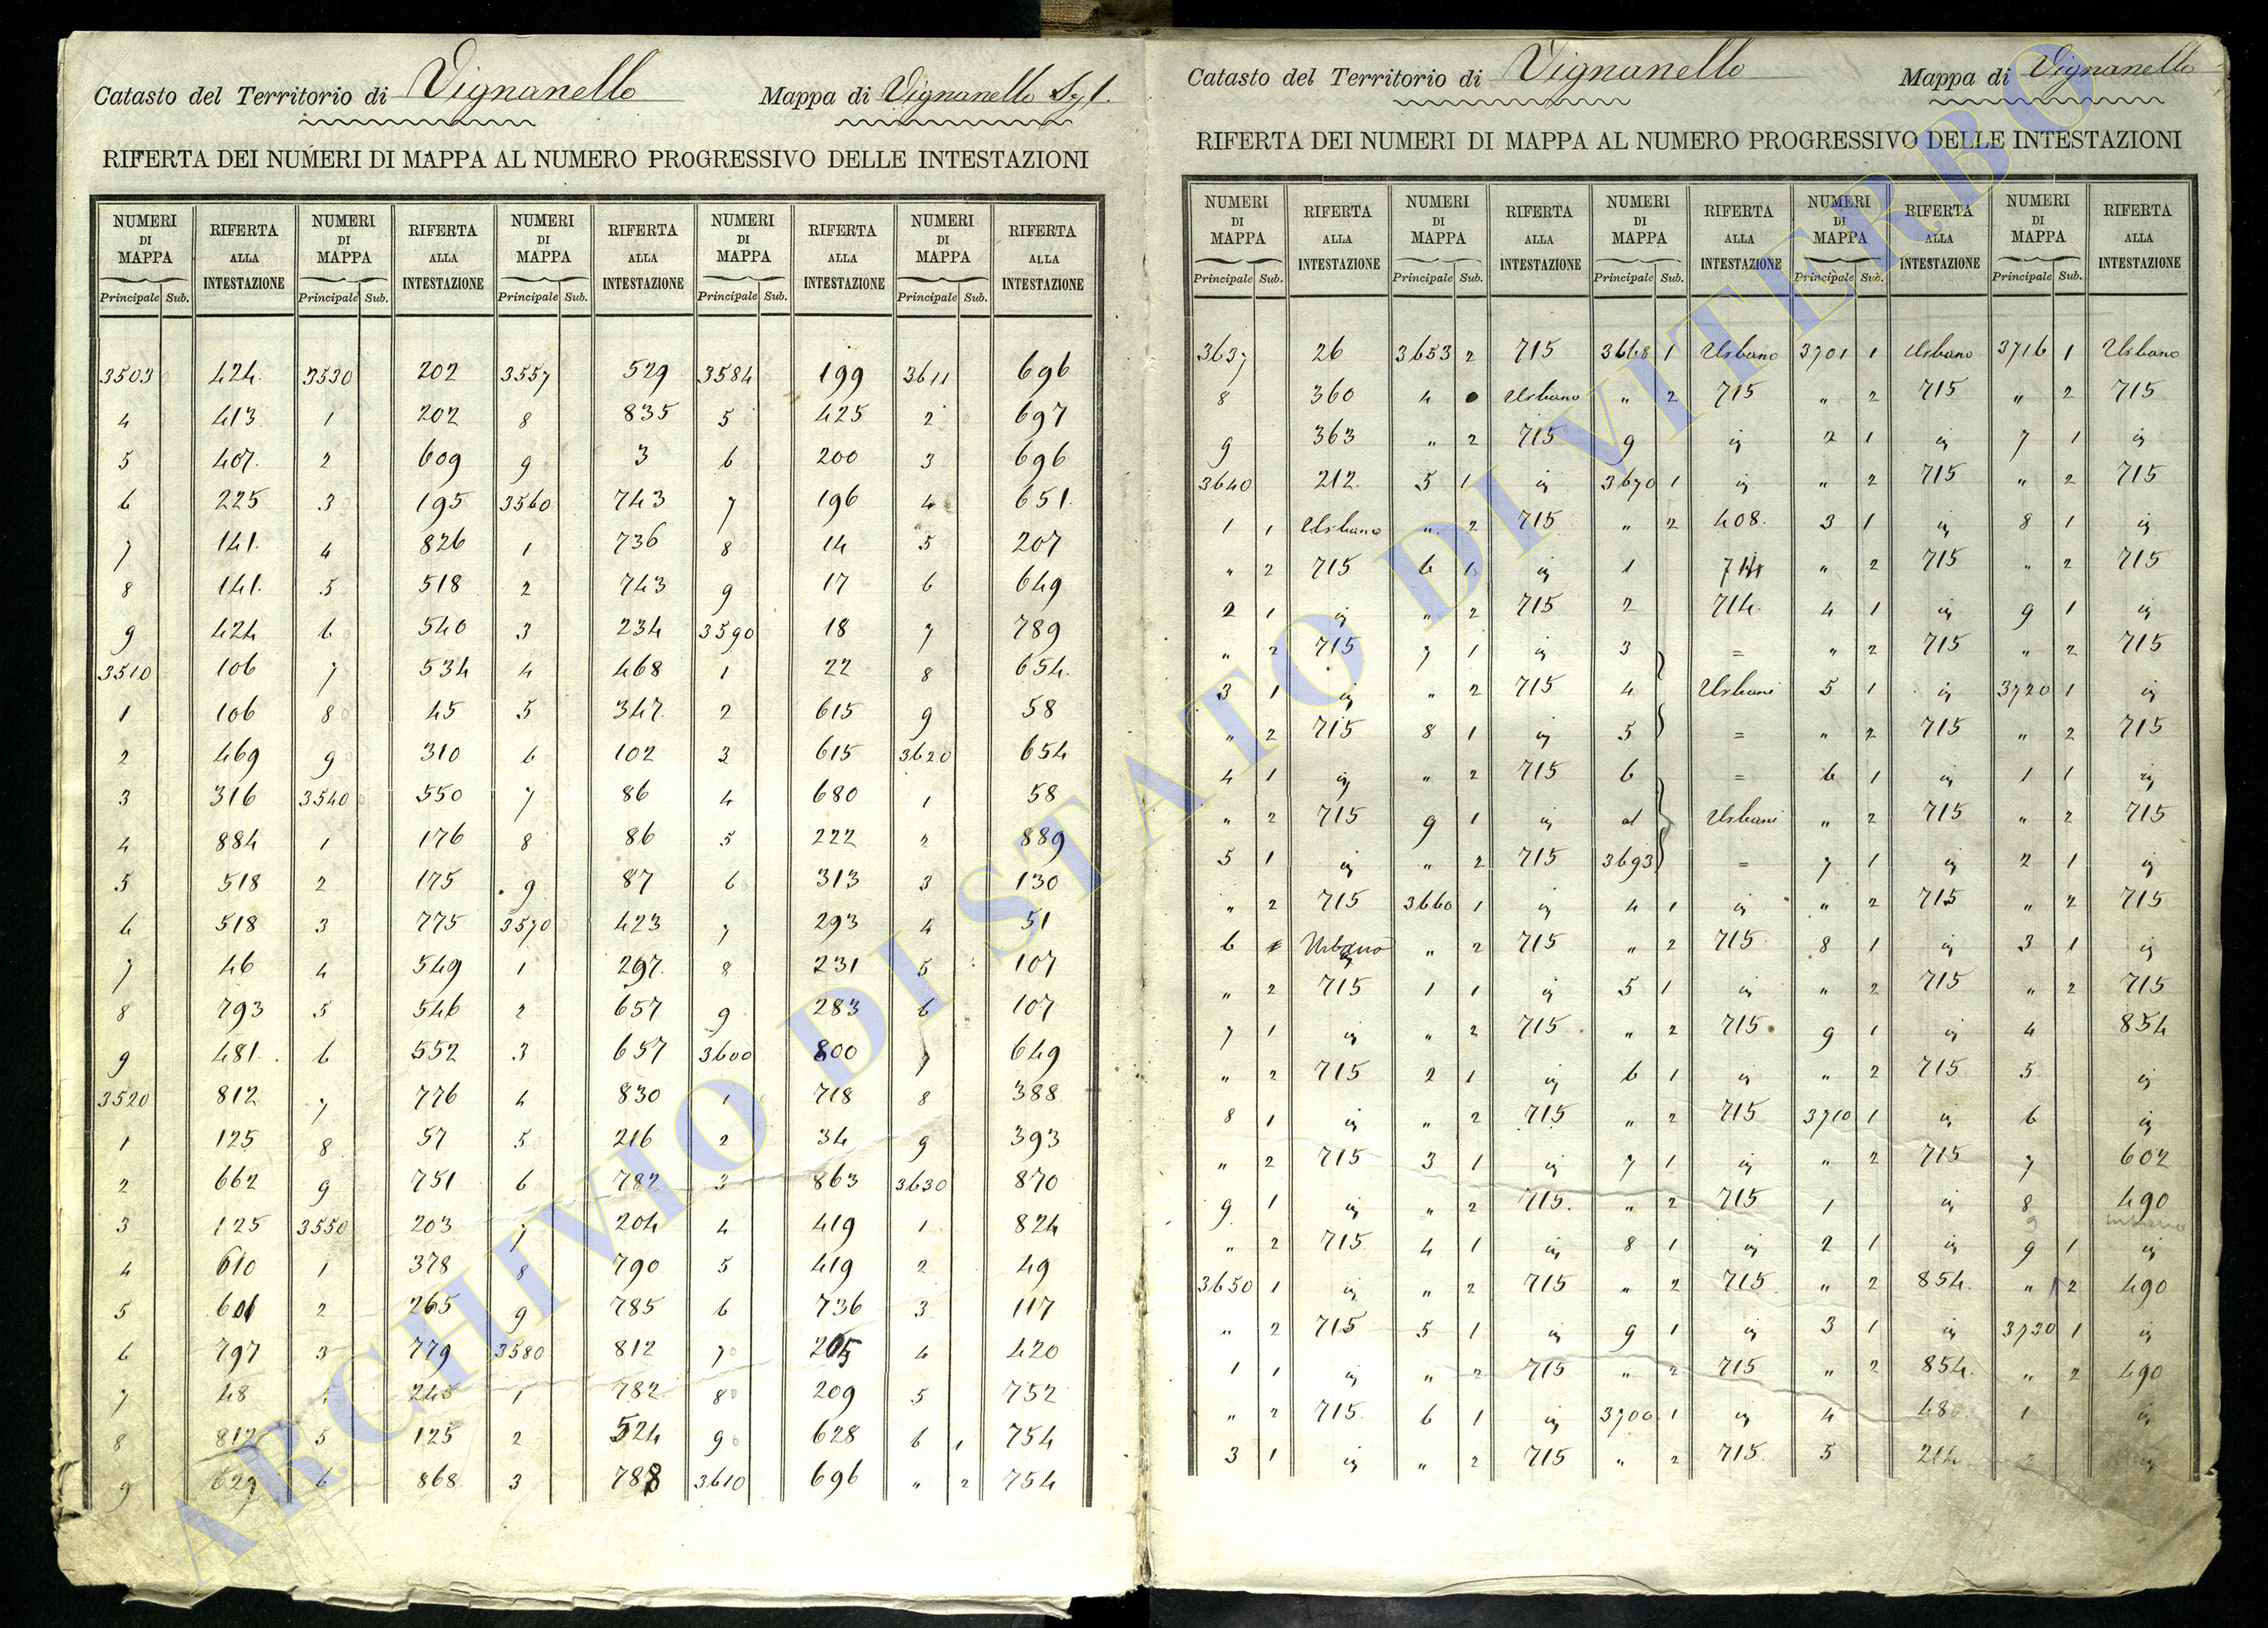 Catasto del Territorio di Vignanello Mappa di Vignanello
RIFERTA DEI NUMERI DI MAPPA AL NUMERO PROGRESSIVO DELLE INTESTAZIONI
NUMERI DI MAPPA RIFERTA ALLA INTESTAZIONE NUMERI DI MAPPA RIFERTA ALLA INTESTAZIONE NUMERI DI MAPPA RIFERTA ALLA INTESTAZIONE NUMERI DI MAPPA RIFERTA ALLA INTESTAZIONE NUMERI DI MAPPA RIFERTA ALLA INTESTAZIONE
Principale Sub. Principale Sub. Principale Sub. Principale Sub. Principale Sub.
3503 424 3530 202 3557 529 3584 199 3611 696
4 413 1 202 8 835 5 425 2 697
5 407 2 609 9 3 6 200 3 696
6 225 3 195 3560 743 7 196 4 651
7 141 4 826 1 736 8 14 5 207
8 141 5 518 2 743 9 17 6 649
9 424 6 540 3 234 3590 18 7 789
3510 106 7 534 4 468 1 22 8 654
1 106 8 45 5 347 2 615 9 58
2 469 9 310 6 102 3 615 3620 654
3 316 3540 550 7 86 4 680 1 58
4 884 1 176 8 86 5 222 2 889
5 518 2 175 9 87 6 313 3 130
6 518 3 775 3570 423 7 293 4 51
7 46 4 549 1 297 8 231 5 107
8 793 5 546 2 657 9 283 6 107
9 481 6 552 3 657 3600 800 7 649
3520 812 7 776 4 830 1 718 8 388
1 125 8 57 5 216 2 34 9 393
2 662 9 751 6 782 3 863 3630 870
3 125 3550 203 7 204 4 419 1 824
4 610 1 378 8 790 5 419 2 49
5 601 2 265 9 785 6 736 3 117
6 797 3 779 3580 812 7 205 4 420
7 48 245 1 782 8 209 5 752
8 812 5 125 2 524 9 628 6 1 754
9 629 6 868 3 788 3610 696 " 2 754
Catasto del Territorio di Vignanello Mappa di Vignanello
RIFERTA DEI NUMERI DI MAPPA AL NUMERO PROGRESSIVO DELLE INTESTAZIONI
NUMERI DI MAPPA RIFERTA ALLA INTESTAZIONE NUMERI DI MAPPA RIFERTA ALLA INTESTAZIONE NUMERI DI MAPPA RIFERTA ALLA INTESTAZIONE NUMERI DI MAPPA RIFERTA ALLA INTESTAZIONE NUMERI DI MAPPA RIFERTA ALLA INTESTAZIONE
Principale Sub. Principale Sub. Principale Sub. Principale Sub. Principale Sub.
3637 26 3653 2 715 3668 1 Urbano 3701 1 Urbano 3716 1 Urbano
8 360 4 Urbano " 2 715 " 2 715 " 2 715
9 363 " 2 715 9 ig 2 1 ig 7 1 ig
3640 212 5 1 ig 3670 1 ig " 2 715 " 2 715
1 1 Urbano " 2 715 " 2 408 3 1 ig 8 1 ig
" 2 715 6 1 ig 1 " 2 715 " 2 715
2 1 ig " 2 715 2 714 4 1 ig 9 1 ig
" 2 715 7 1 ig 3 = " 2 715 " 2 715
3 1 ig " 2 715 4 Urbani 5 1 ig 3720 1 ig
" 2 715 8 1 ig 5 = " 2 715 " 2 715
4 1 ig " 2 715 6 = 6 1 ig 1 1 ig
" 2 715 9 1 ig al Urbani " 2 715 " 2 715
5 1 ig " 2 715 3693 = 7 1 ig 2 1 ig
" 2 715 3660 1 ig 4 1 ig " 2 715 " 2 715
6 Urbano " 2 715 " 2 715 8 1 ig 3 1 ig
" 2 715 1 1 ig 5 1 ig " 2 715 " 2 715
7 1 ig " 2 715 " 2 715 9 1 ig 4 854
" 2 715 2 1 ig 6 1 ig " 2 715 5 ig
8 1 ig " 2 715 " 2 715 3710 1 ig 6 ig
" 2 715 3 1 ig 7 1 ig " 2 715 7 602
9 1 ig " 2 715 " 2 715 1 ig 8 490
" 2 715 4 1 ig 8 1 ig 2 1 ig 9 1 ig
3650 1 ig " 2 715 " 2 715 " 2 854 " 2 490
" 2 715 5 1 ig 9 1 ig 3 1 ig 3730 1 ig
1 1 ig " 2 715 " 2 715 " 2 854 " 2 490
" 2 715 6 1 ig 3700 1 ig 4 1 ig
3 1 ig " 2 715 " 2 715 5 214 2 ig
ARCHIVIO DI STATO DI VITERBO